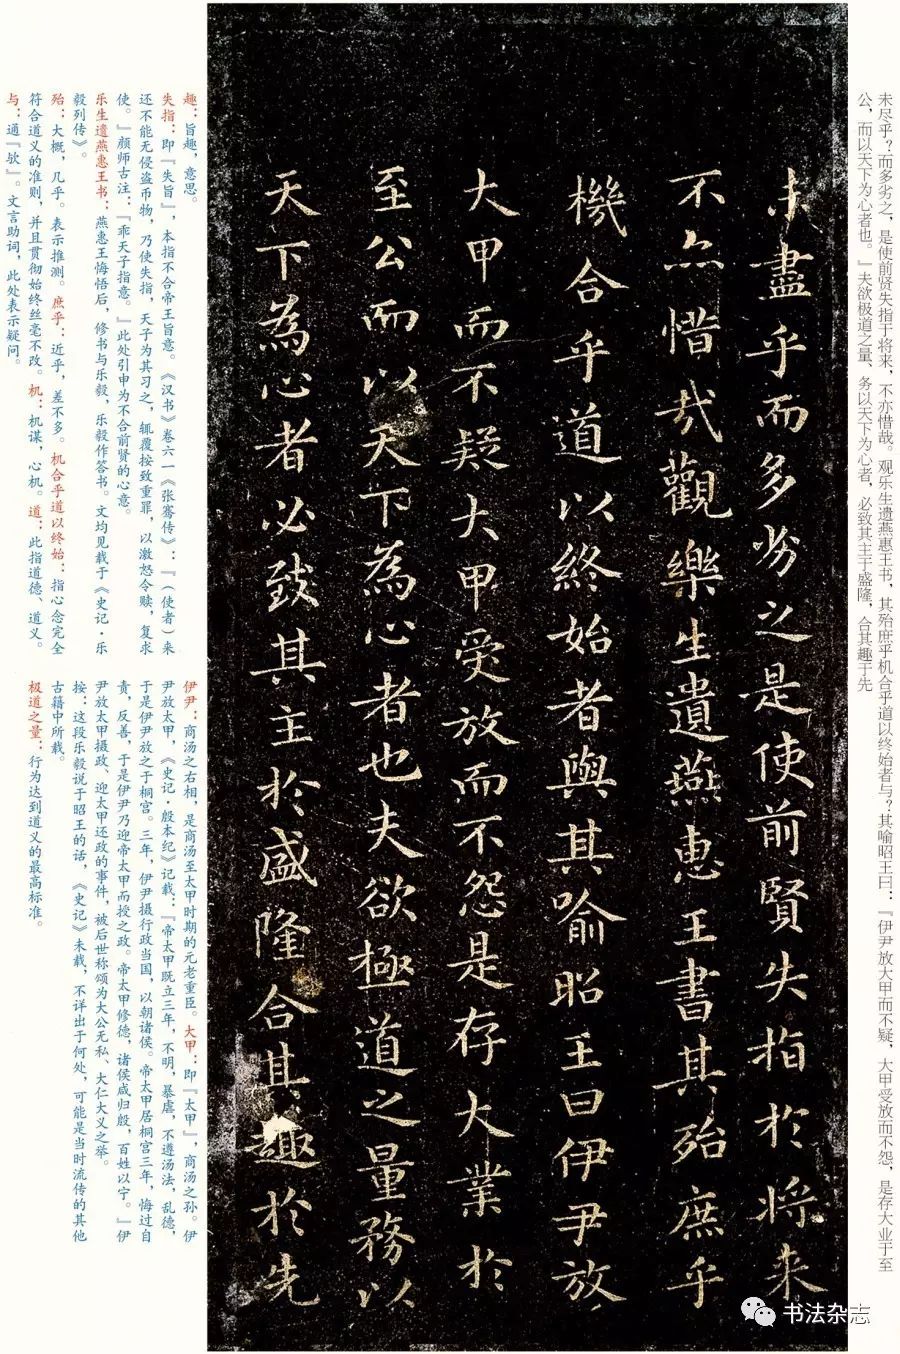 未尽乎？而多劣之，是使前贤失指于将来，不亦惜哉。观乐生遗燕惠王书，其殆庶乎机合乎道以终始者与？其喻昭王曰：『伊尹放大甲而不疑，大甲受放而不怨，是存大业于至
公，而以天下为心者也。』夫欲极道之量，务以天下为心者，必致其主于盛隆，合其趣于先
未盡乎而多劣之是使前賢失指於將来
不亦惜哉觀樂生遺燕惠王書其殆庶乎
機合乎道以終始者與其喻昭王曰伊尹放
大甲而不疑大甲受放而不怨是存大業於
至公而以天下為心者也夫欲極道之量務以
天下為心者必致其主於盛隆合其趣於先
趣：旨趣，意思。
失指：即『失旨』，本指不合帝王旨意。《汉书》卷六一《张骞传》：『（使者）来
还不能无侵盗币物，乃使失指，天子为其习之，辄覆按致重罪，以激怒令赎，复求
使。』颜师古注：『乖天子指意。』此处引申为不合前贤的心意。
乐生遗燕惠王书：燕惠王悔悟后，修书与乐毅，乐毅作答书。文均见载于《史记·乐
毅列传》。
殆：大概，几乎。表示推测。庶乎：近乎，差不多。机合乎道以终始：指心念完全
符合道义的准则，并且贯彻始终丝毫不改。机：机谋，心机。道：此指道德、道义。
与：通『欤』。文言助词，此处表示疑问。
伊尹：商汤之右相，是商汤至太甲时期的元老重臣。大甲：即『太甲』，商汤之孙。伊
尹放太甲，《史记·殷本纪》记载：『帝太甲既立三年，不明，暴虐，不遵汤法，乱德，
于是伊尹放之于桐宫。三年，伊尹摄行政当国，以朝诸侯。帝太甲居桐宫三年，悔过自
责，反善，于是伊尹乃迎帝太甲而授之政。帝太甲修德，诸侯咸归殷，百姓以宁。』伊
尹放太甲摄政、迎太甲还政的事件，被后世称颂为大公无私、大仁大义之举。
按：这段乐毅说于昭王的话，《史记》未载，不详出于何处，可能是当时流传的其他
古籍中所载。
极道之量：行为达到道义的最高标准。
书法杂志